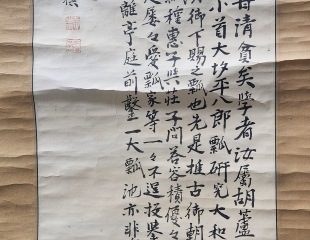 甘清貧矣學者汝屬胡蘆
小首大坂平八郎瓢研究大和
御下賜之瓢也先是推古御朝
種惠子與莊子問答容積優々
屢々愛瓢家等一々不遑枚擧
離亭庭前鑿一大瓢池亦非